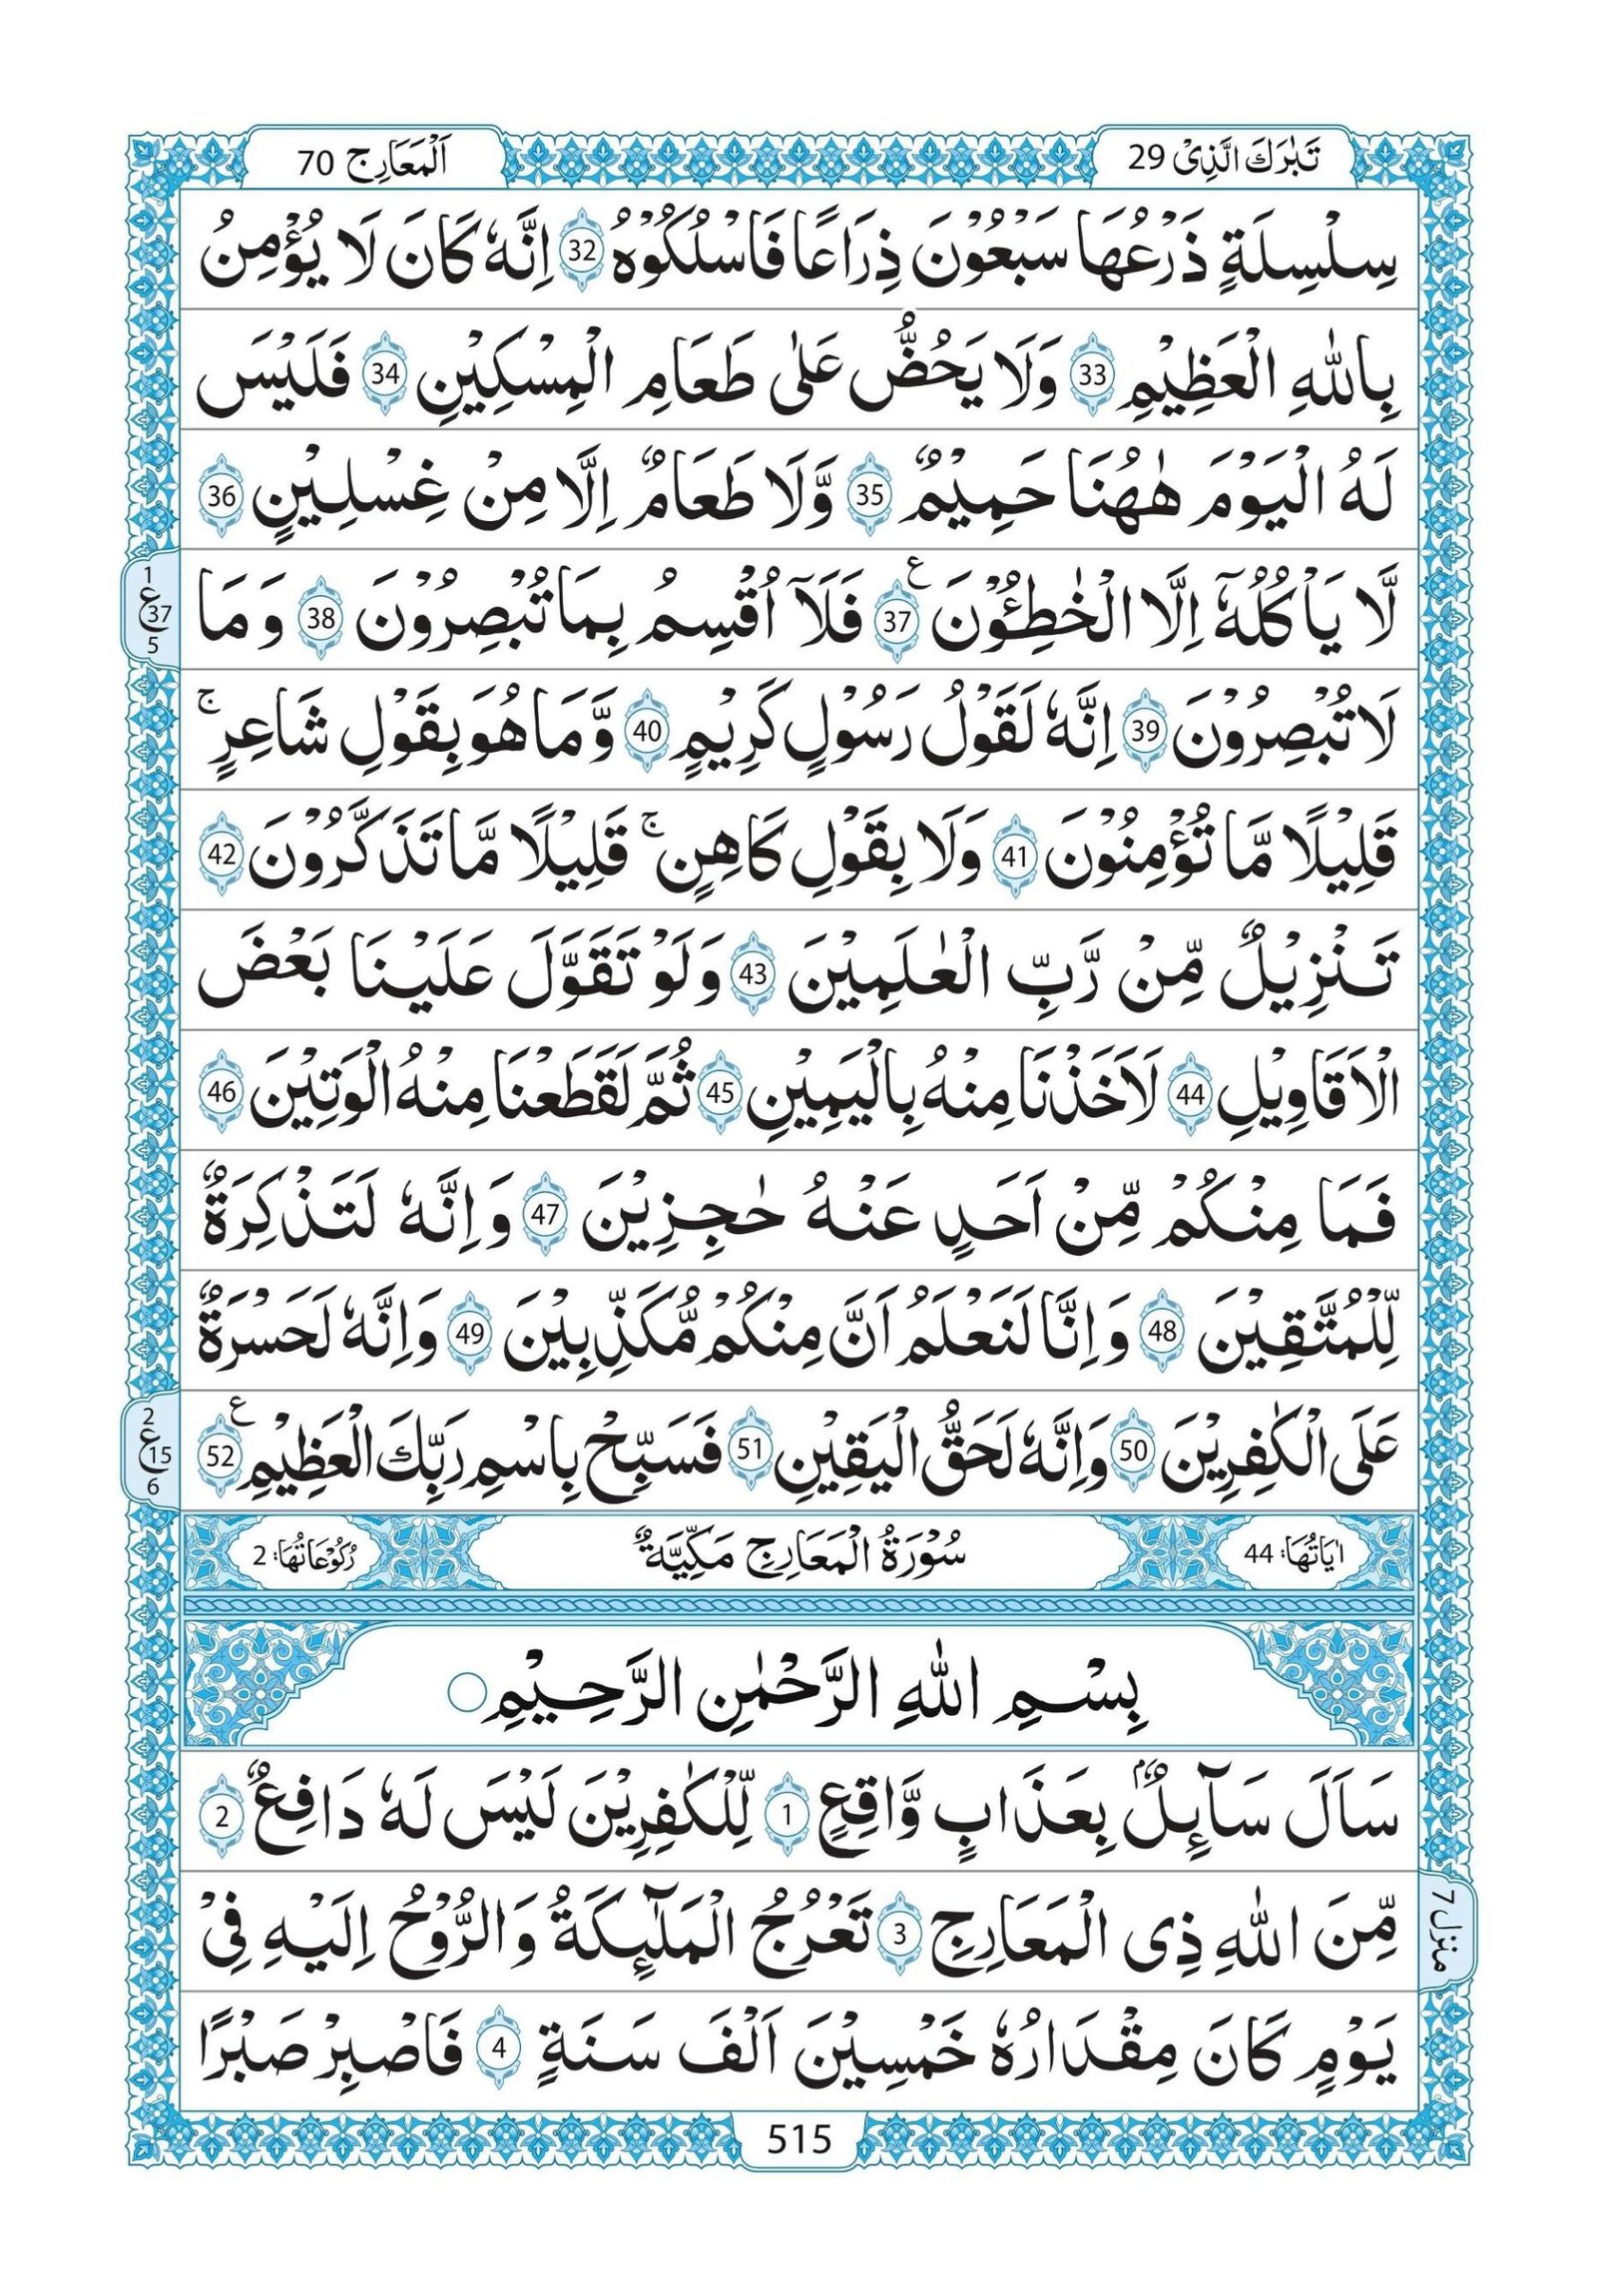 تَبٰرَكَ الَّذِیْ 29
اَلْمَعَارِج 70
سِلْسِلَةٍ ذَرْعُهَا سَبْعُوْنَ ذِرَاعًا فَاسْلُكُوْهُ 32 اِنَّهٗ كَانَ لَا یُؤْمِنُ
بِاللّٰهِ الْعَظِیْمِ 33 وَلَا یَحُضُّ عَلٰی طَعَامِ الْمِسْكِیْنِ 34 فَلَیْسَ
لَهُ الْیَوْمَ هٰهُنَا حَمِیْمٌ 35 وَّلَا طَعَامٌ اِلَّا مِنْ غِسْلِیْنٍ 36
لَّا یَاْكُلُهٗۤ اِلَّا الْخٰطِـُٔوْنَ ع 37 فَلَاۤ اُقْسِمُ بِمَا تُبْصِرُوْنَ 38 وَمَا
1
ع 37
5
لَا تُبْصِرُوْنَ 39 اِنَّهٗ لَقَوْلُ رَسُوْلٍ كَرِیْمٍ 40 وَّمَا هُوَ بِقَوْلِ شَاعِرٍ ۚ
قَلِیْلًا مَّا تُؤْمِنُوْنَ 41 وَلَا بِقَوْلِ كَاهِنٍ ۚ قَلِیْلًا مَّا تَذَكَّرُوْنَ 42
تَنْزِیْلٌ مِّنْ رَّبِّ الْعٰلَمِیْنَ 43 وَلَوْ تَقَوَّلَ عَلَیْنَا بَعْضَ
الْاَقَاوِیْلِ 44 لَاَخَذْنَا مِنْهُ بِالْیَمِیْنِ 45 ثُمَّ لَقَطَعْنَا مِنْهُ الْوَتِیْنَ 46
فَمَا مِنْكُمْ مِّنْ اَحَدٍ عَنْهُ حٰجِزِیْنَ 47 وَاِنَّهٗ لَتَذْكِرَةٌ
لِّلْمُتَّقِیْنَ 48 وَاِنَّا لَنَعْلَمُ اَنَّ مِنْكُمْ مُّكَذِّبِیْنَ 49 وَاِنَّهٗ لَحَسْرَةٌ
عَلَی الْكٰفِرِیْنَ 50 وَاِنَّهٗ لَحَقُّ الْیَقِیْنِ 51 فَسَبِّحْ بِاسْمِ رَبِّكَ الْعَظِیْمِ ع 52
2
ع 15
6
اٰیَاتُهَا: 44 سُوْرَةُ الْمَعَارِجِ مَكِّیَّةٌ رُكُوْعَاتُهَا: 2
بِسْمِ اللّٰهِ الرَّحْمٰنِ الرَّحِیْمِ
سَاَلَ سَآىِٕلٌۢ بِعَذَابٍ وَّاقِعٍ 1 لِّلْكٰفِرِیْنَ لَیْسَ لَهٗ دَافِعٌ 2
مِّنَ اللّٰهِ ذِی الْمَعَارِجِ 3 تَعْرُجُ الْمَلٰٓىِٕكَةُ وَالرُّوْحُ اِلَیْهِ فِیْ
منزل 7
یَوْمٍ كَانَ مِقْدَارُهٗ خَمْسِیْنَ اَلْفَ سَنَةٍ 4 فَاصْبِرْ صَبْرًا
515